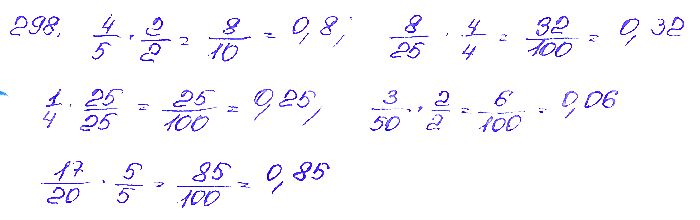 298. 4/5 · 2/2 = 8/10 = 0,8; 8/25 · 4/4 = 32/100 = 0,32
1/4 · 25/25 = 25/100 = 0,25, 3/50 · 2/2 = 6/100 = 0,06
17/20 · 5/5 = 85/100 = 0,85